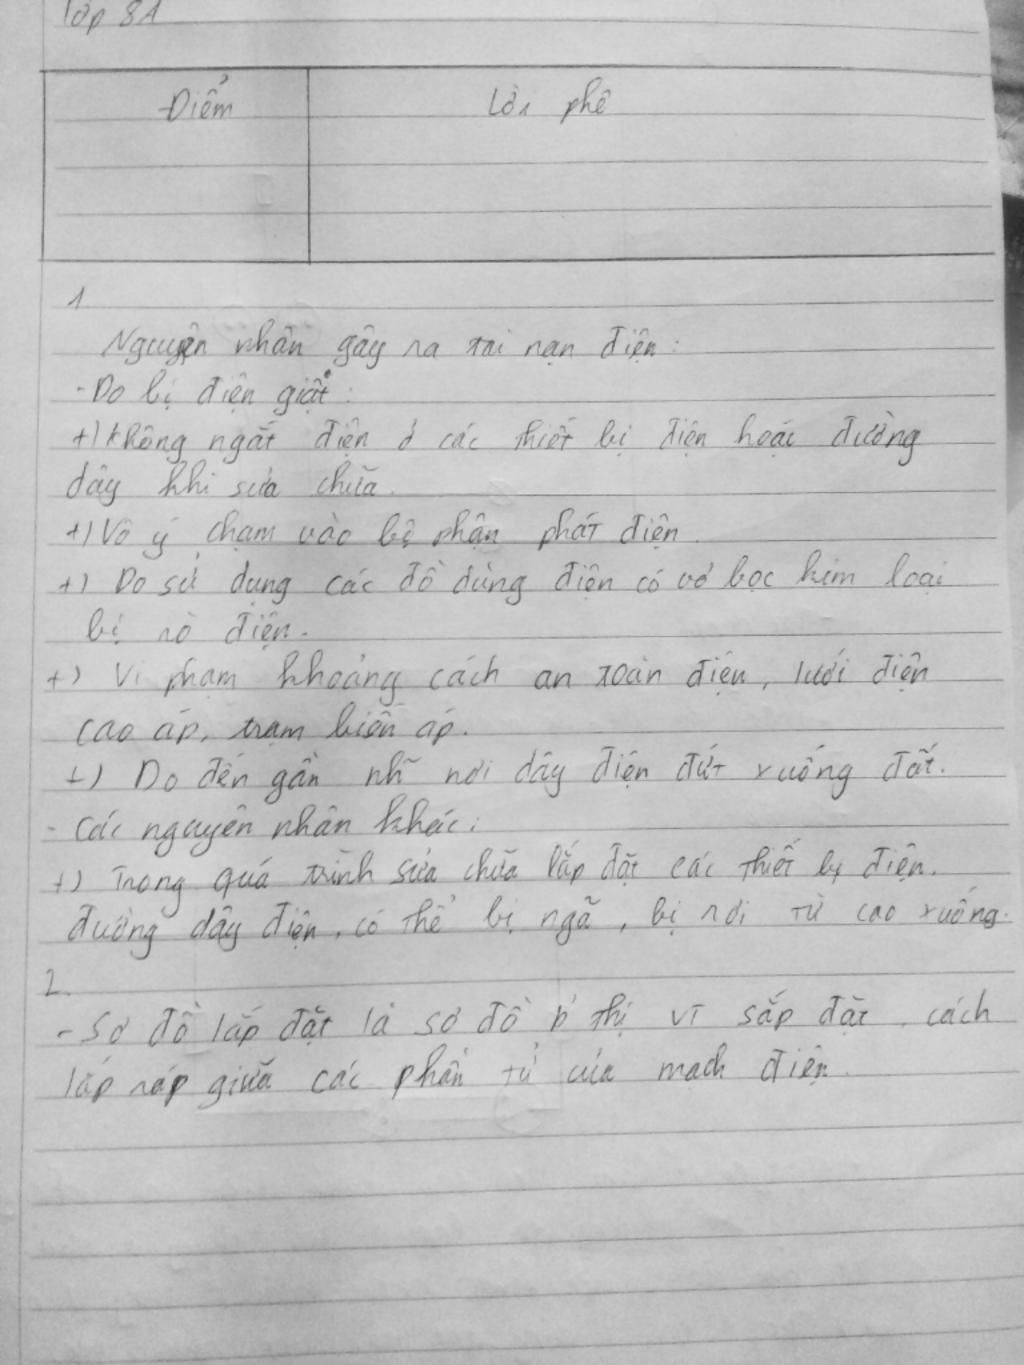 lớp 8A
Điểm
Lời phê
1
Nguyện nhân gây ra tai nạn điện:
- Do bị điện giật:
+) không ngắt điện ở các thiết bị điện hoặc đường
dây khi sửa chữa.
+) Vô ý chạm vào bộ phận phát điện.
+) Do sử dụng các đồ dùng điện có vỏ bọc kim loại
bị rò điện.
+) Vi phạm khoảng cách an toàn điện, lưới điện
cao áp, trạm biến áp.
+) Do đến gần nh~ nơi dây điện đứt xuống đất.
- Các nguyên nhân khác:
+) Trong quá trình sửa chữa lắp đặt các thiết bị điện.
đường dây điện, có thể bị ngã, bị rơi từ cao xuống.
2.
- Sơ đồ lắp đặt là sơ đồ thị vĩ sắp đặt, cách
lắp ráp giữa các phần tử của mạch điện.